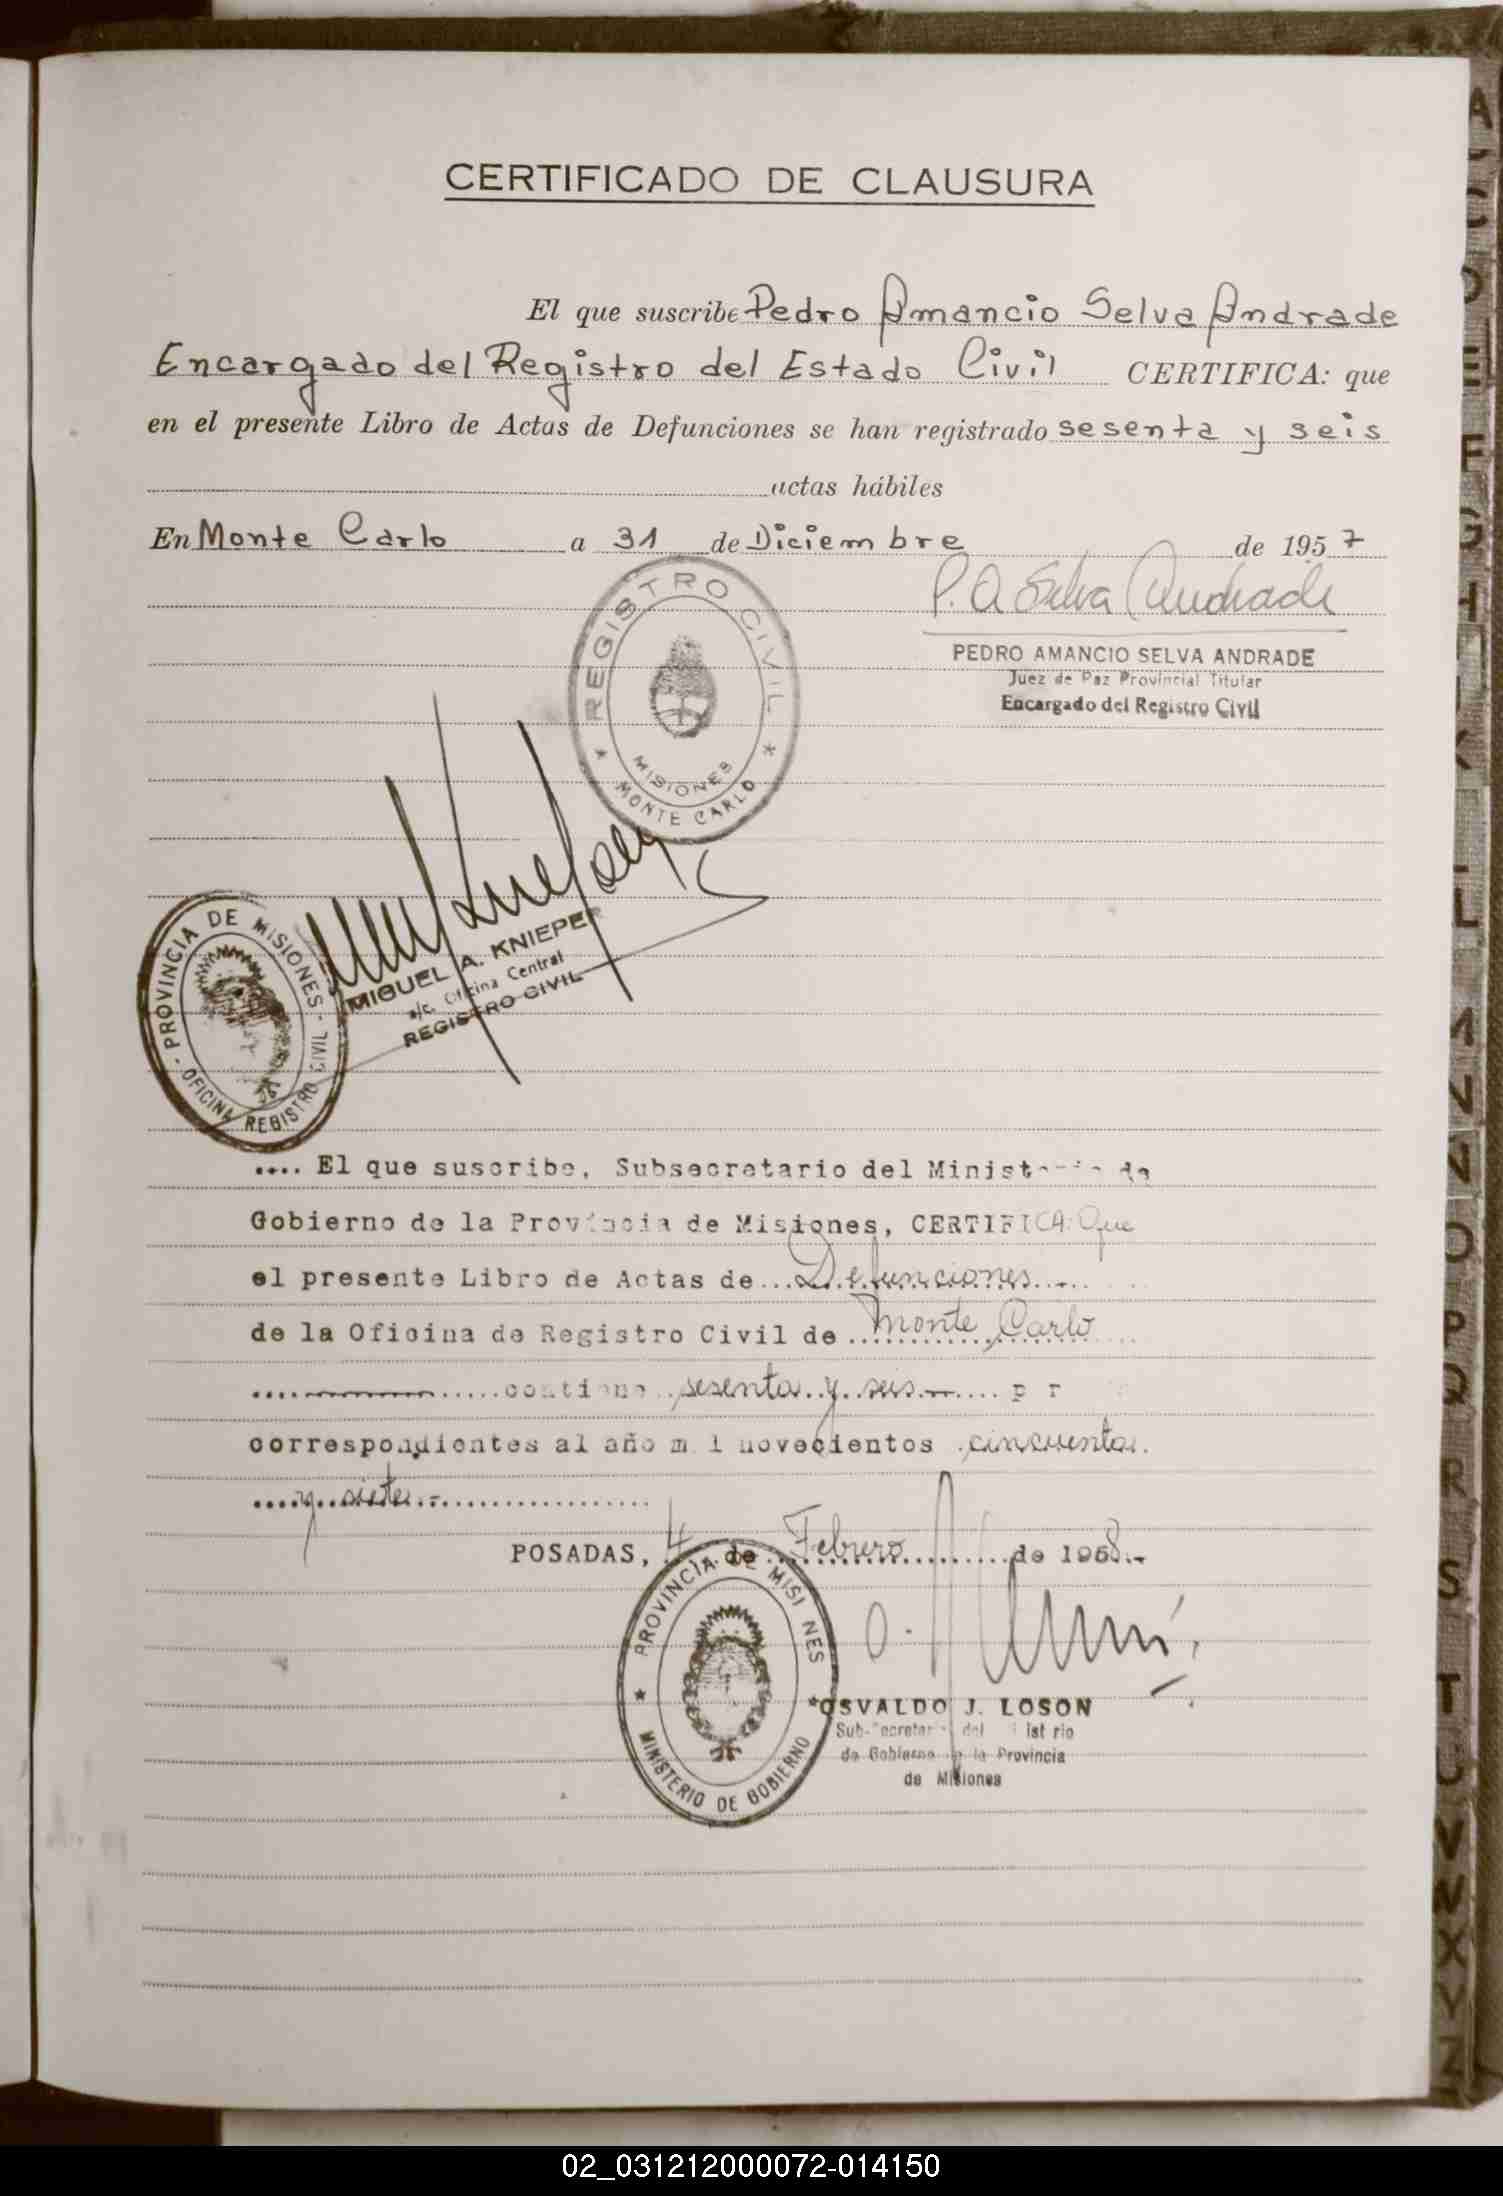 CERTIFICADO DE CLAUSURA
El que suscribe Pedro Amancio Selva Andrade
Encargado del Registro del Estado Civil CERTIFICA: que
en el presente Libro de Actas de Defunciones se han registrado sesenta y seis
actas hábiles
En Monte Carlo a 31 de Diciembre de 1957
P. A Selva Andrade
REGISTRO CIVIL
MISIONES
* MONTE CARLO *
PEDRO AMANCIO SELVA ANDRADE
Juez de Paz Provincial Titular
Encargado del Registro Civil
PROVINCIA DE MISIONES -
OFICINA REGISTRO CIVIL
MIGUEL A. KNIEPER
a/c. Oficina Central
REGISTRO CIVIL
.... El que suscribe, Subsecretario del Ministerio de
Gobierno de la Provincia de Misiones, CERTIFICA: Que
el presente Libro de Actas de...Defunciones....
de la Oficina de Registro Civil de ...Monte Carlo
contiene sesenta y seis
correspondientes al año mil novecientos cincuenta
y siete
POSADAS, 4 de Febrero de 1958.-
PROVINCIA DE MISIONES
* MINISTERIO DE GOBIERNO *
OSVALDO J. LOSON
Sub-Secretario del Ministerio
de Gobierno de la Provincia
de Misiones
A
C
D
E
F
G
H
I
K
L
L
M
N
N
O
P
Q
R
S
T
U
V
W
X
Y
Z
02_031212000072-014150